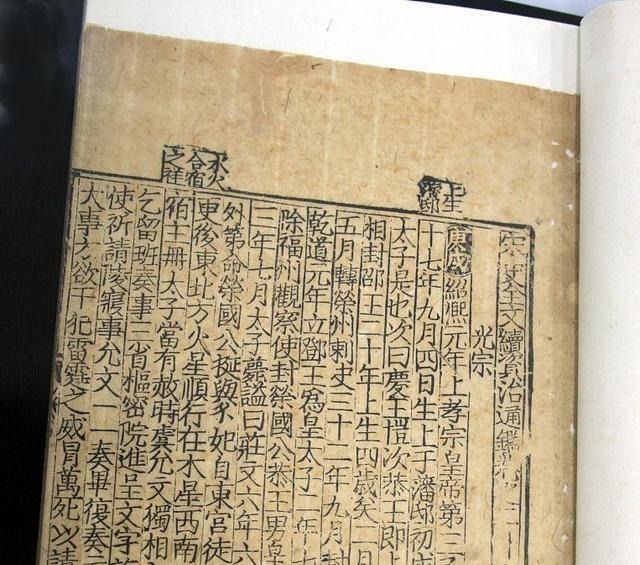 宋史全文續資治通鑑
光宗
上生
潛邸
庚戌紹熙元年上孝宗皇帝第三
十七年九月四日生上于藩邸初
太子是也次曰慶王愷次恭王即上
相封邵王二十年上生四歲矣一日
五月轉榮州刺史三十二年九月封
乾道元年立鄧王爲皇太子二年
除福州觀察使封榮國公恭王男皇
三年七月太子薨謚曰莊文六年六
木火
合宿
之祥
外第命榮國公挺與妃自東宮徒
更後東北方火星順行在木星西南
宿主冊太子當有赦時虞允文獨相
乞留班奏事三省樞密院進呈文字
使祈請陵寢事允文一奏畢復奏
大事文欲干犯雷霆之威冒萬死以請